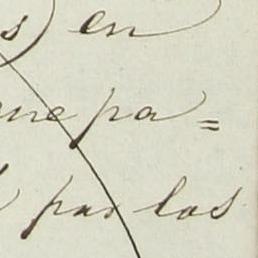 s) en
ue pa=
par los